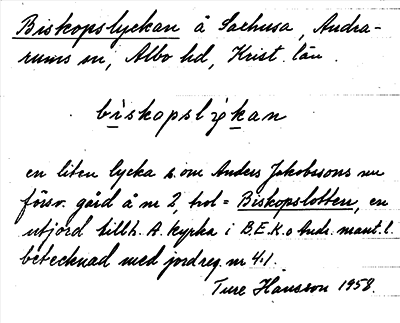 Biskopslyckan å Sachusa, Andra-
rums sn, Albo hd, Krist. län.
biskopslykan
en liten lycka som Anders Jakobssons nu
försv. gård å nr 2, trol = Biskopslotten, en
utjord tillh. A. kyrka i B.E.K. o Andr. mant. l.
betecknad med jordreg. nr 4:1.
Ture Hansson 1958.